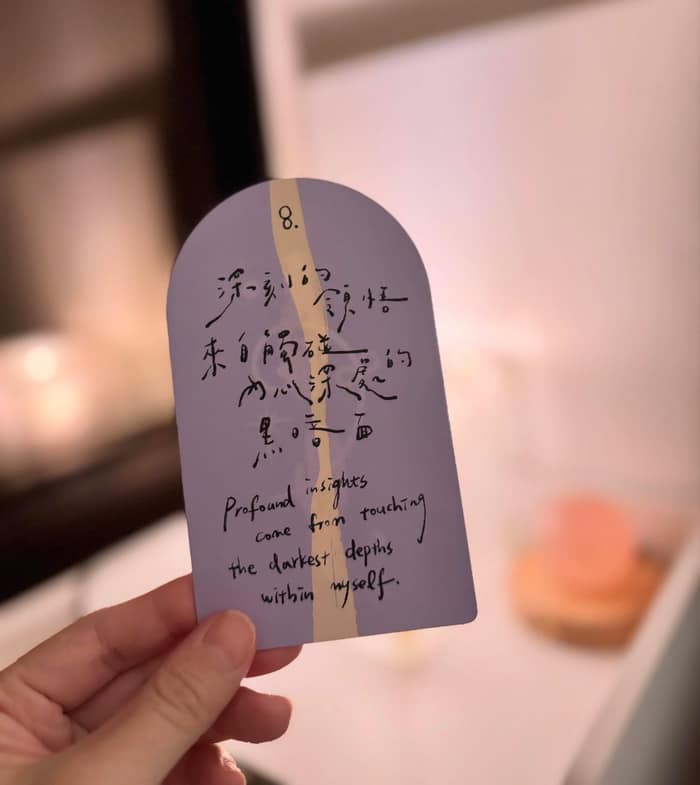 8.
深刻的
領悟
來自觸碰
內心深處的
黑暗面
Profound insights
come from touching
the darkest depths
within myself.